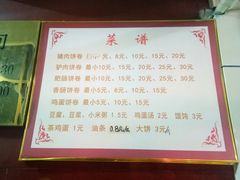 菜谱
猪肉饼卷 元、8元、10元、15元、20元
驴肉饼卷 最小10元、15元、20元、25元、30元
肥肠饼卷 最小10元、15元、20元、25元、30元
香肠饼卷 最小5元、8元、10元、15元
鸡蛋饼卷 最小5元、8元、10元、15元
豆浆、豆腐、小米粥 1.5元 鸡蛋汤 2元 馄饨 3元
茶鸡蛋 1元 油条 大饼 3元